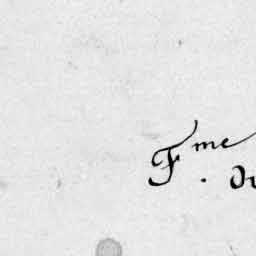 Fme. Ou